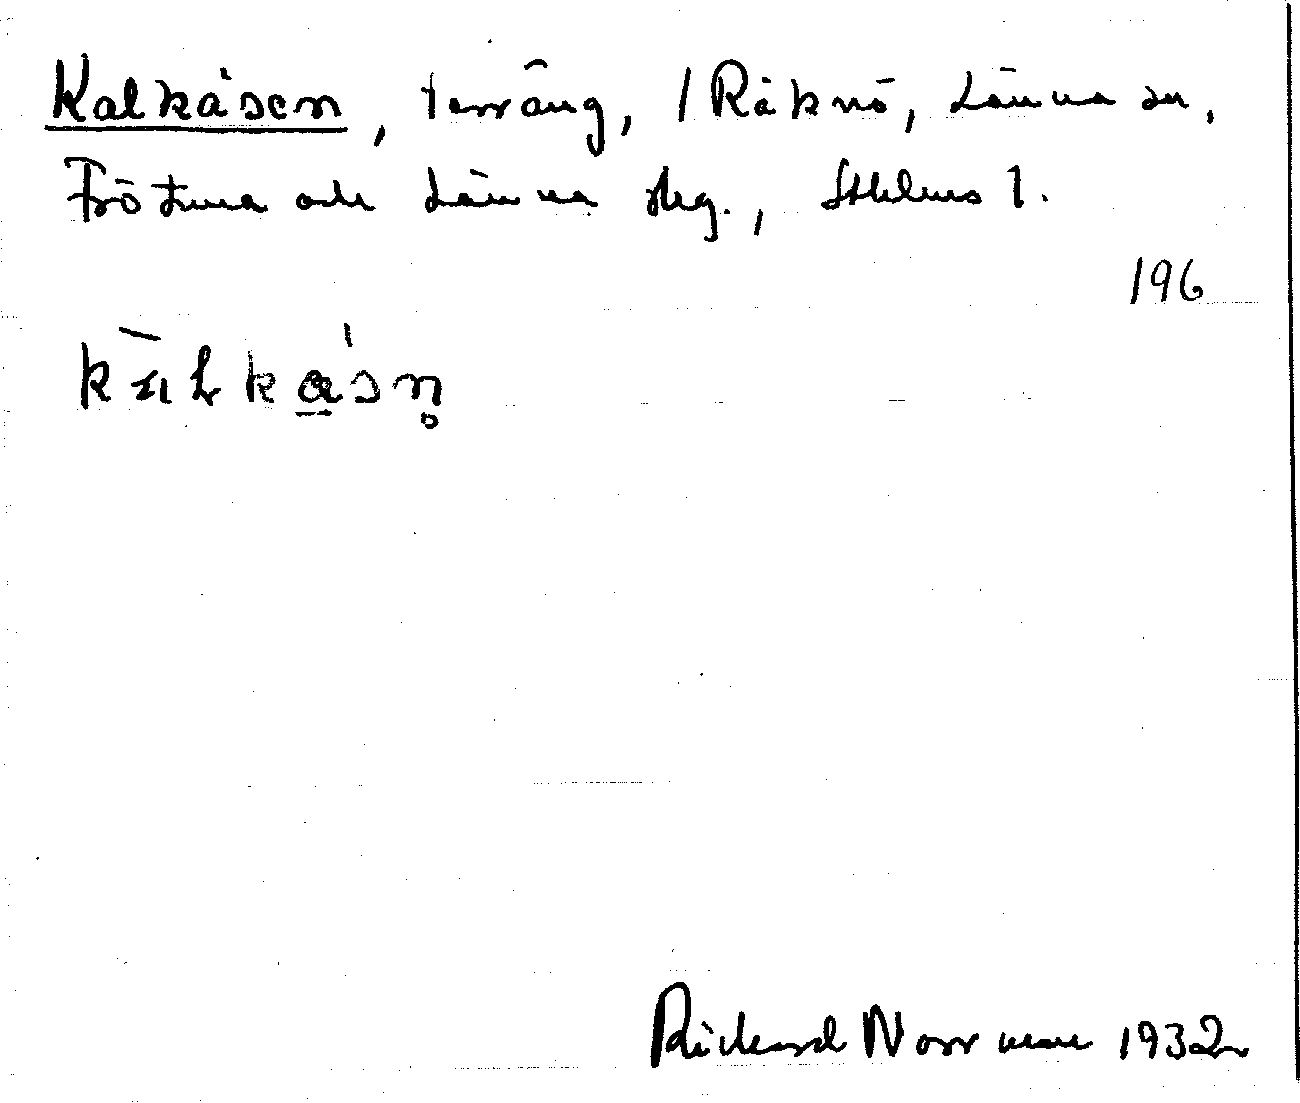 Kalkåsen, terräng, 1 Råknö, Länna sn,
Frötuna och Länna skg., Sthlms l.
196
Rickard Norrman 1932